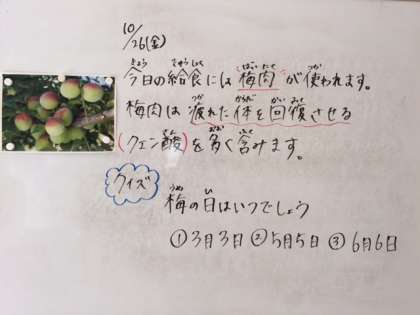 10/26(金)
今日の給食には梅肉が使われます。
梅肉は疲れた体を回復させる
(クエン酸)を多く含みます。
クイズ
梅の日はいつでしょう
①3月3日 ②5月5日 ③6月6日